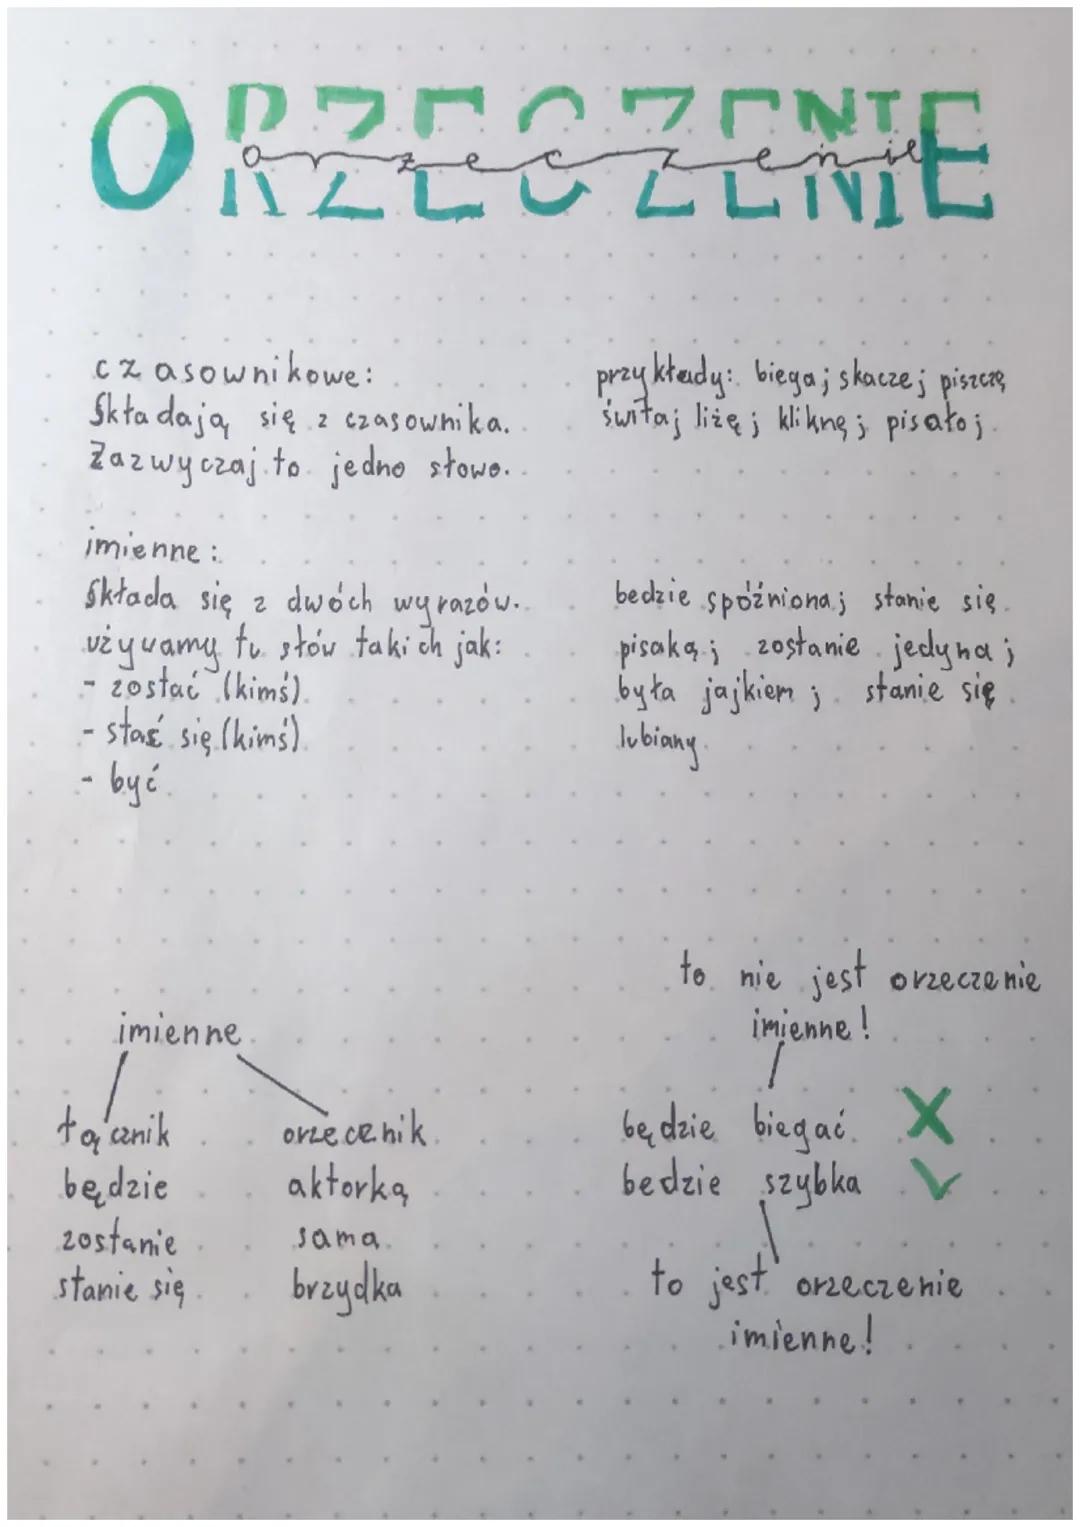 ORZECZENIE
orzeczenie
czasownikowe:
Składają się z czasownika.
Zazwyczaj to jedno słowo.
przykłady: biega; skacze; piszczę
świta; liżę; kliknę; pisało;
imienne:
Składa się z dwóch wyrazów.
używamy tu słów takich jak:
- zostać (kimś)
- stać się (kimś)
- być
bedzie spóźniona; stanie się
pisaką; zostanie jedyna;
była jajkiem; stanie się
lubiany
imienne
łącznik
orzecznik
będzie
aktorką
zostanie
sama
stanie się
brzydka
to nie jest orzeczenie
imienne!
będzie biegać X
bedzie szybka ✓
to jest orzeczenie
imienne!